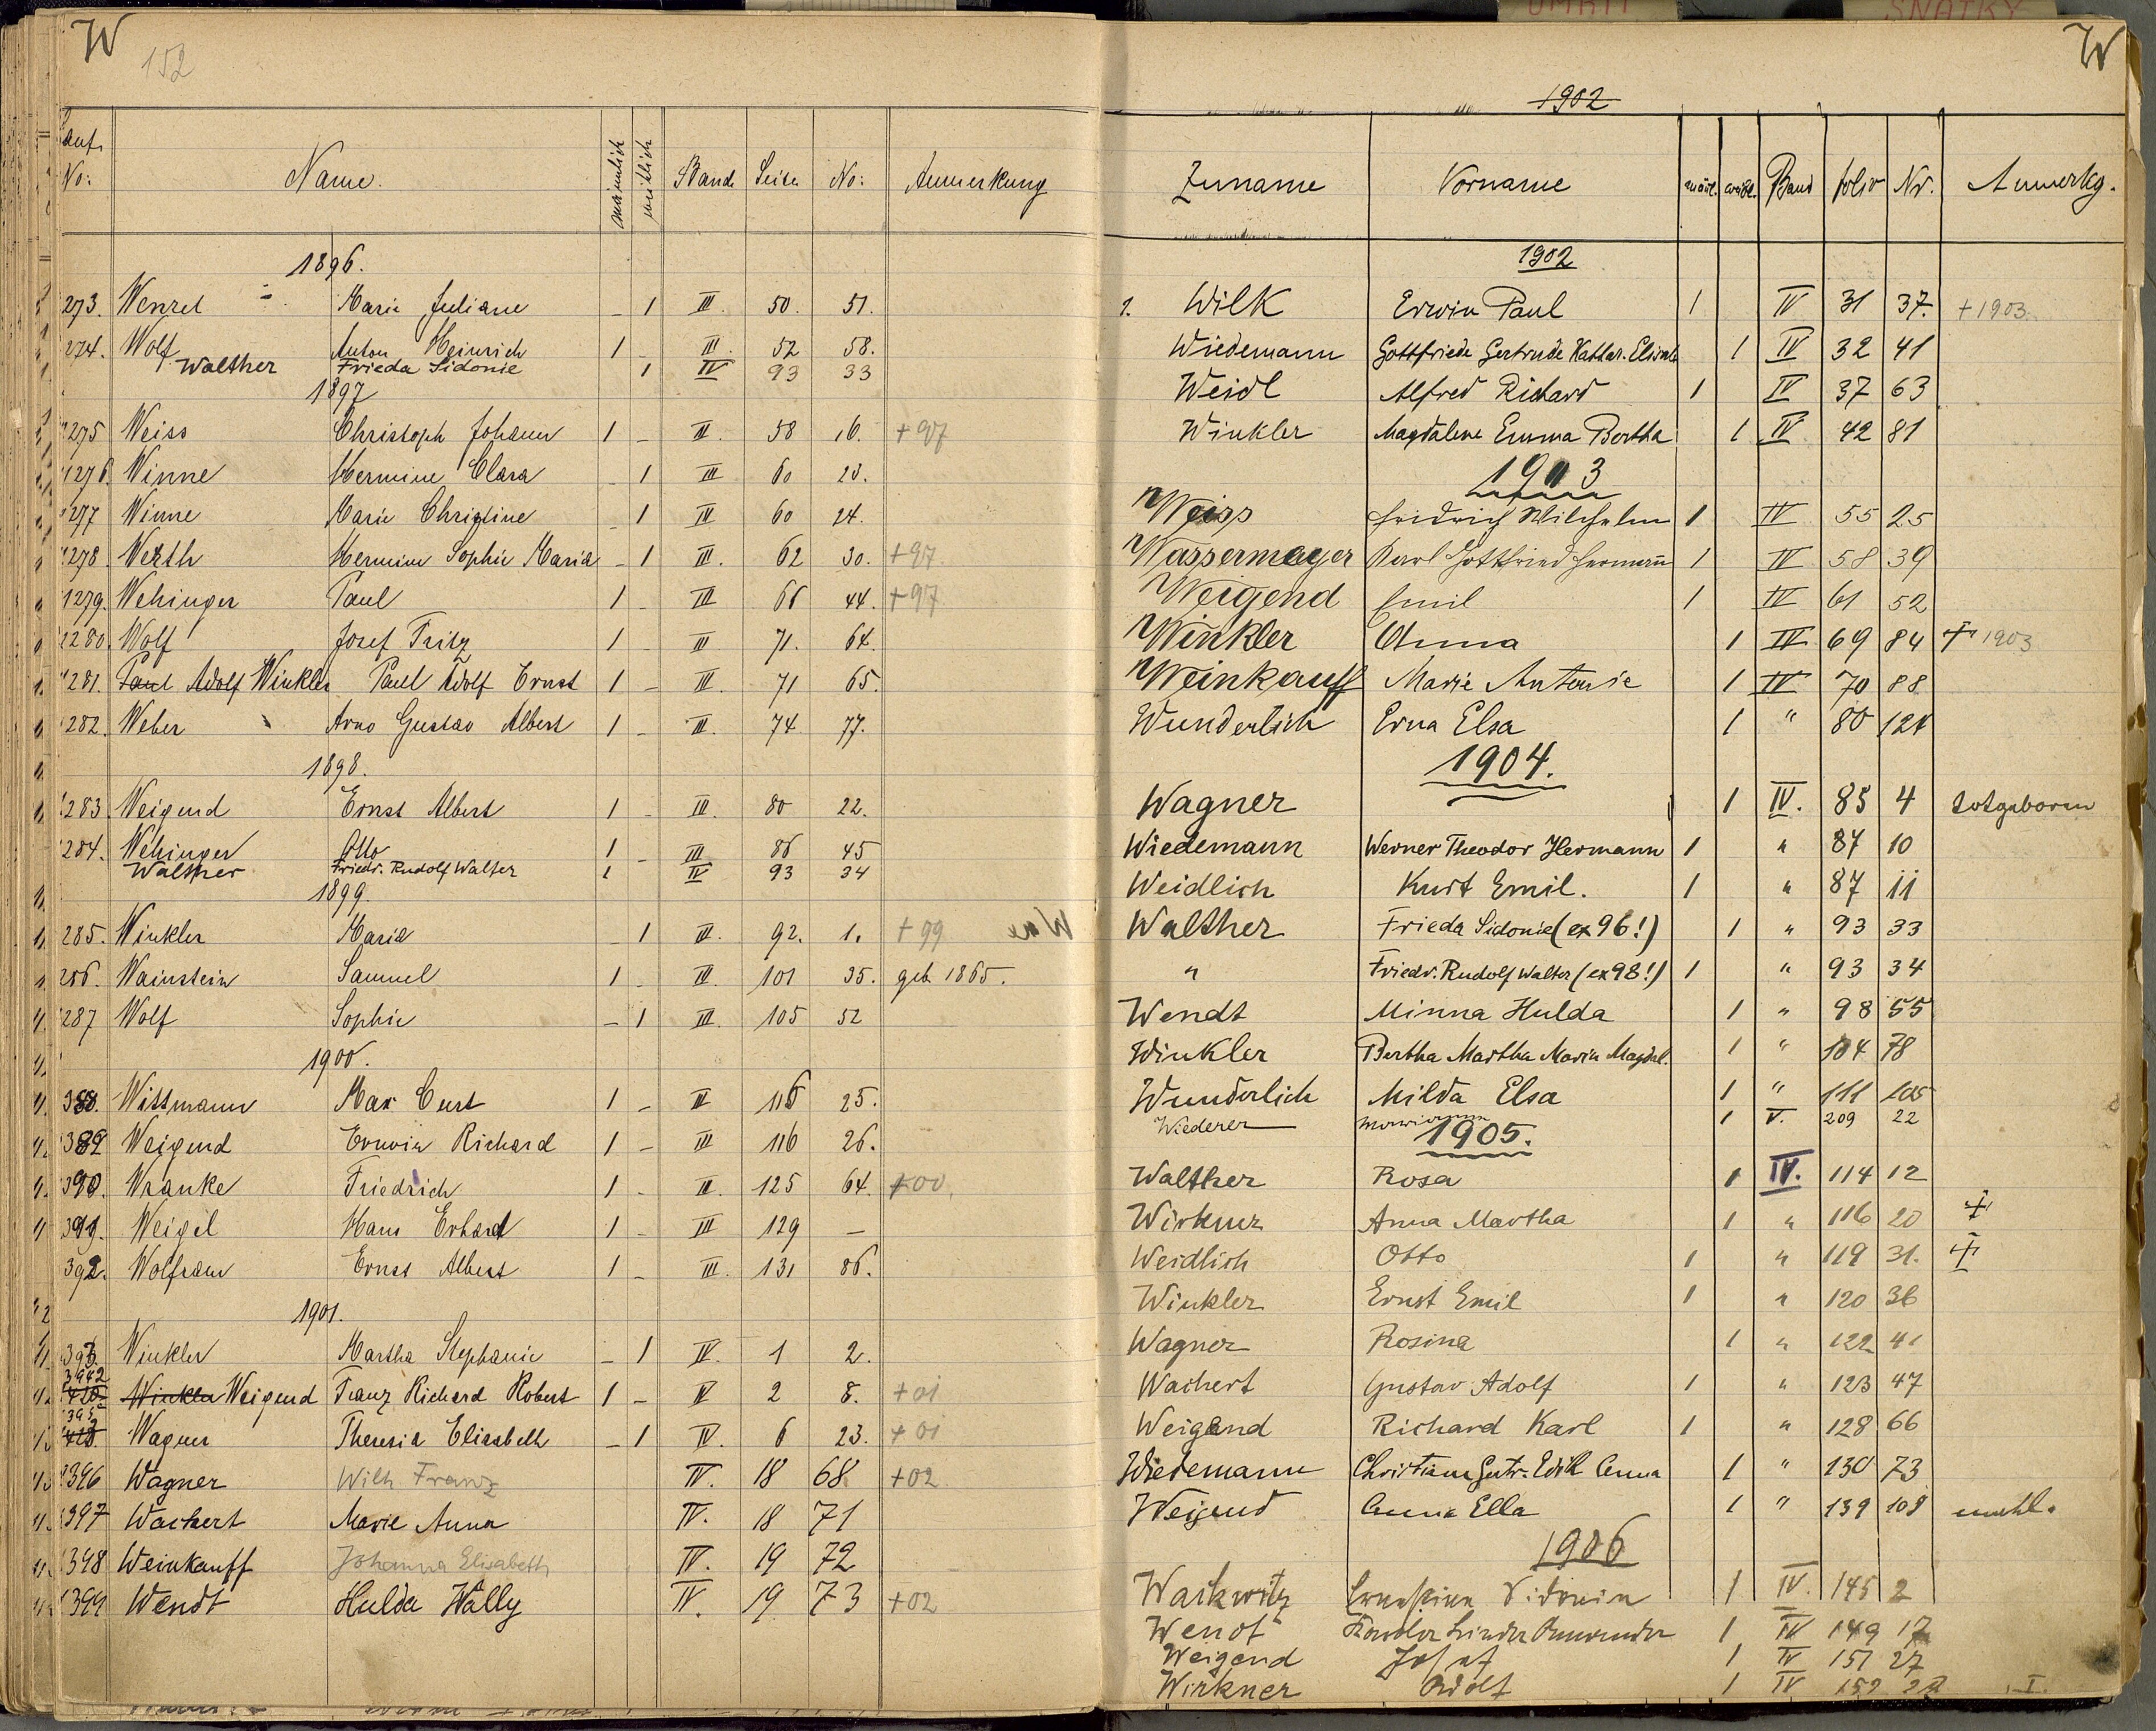 W
152
Lauf. No: Name. männlich weiblich Band Seite No: Anmerkung
1896.
273. Wenzel Marie Juliane – 1 III. 50. 51.
274. Wolf Anton Heinrich 1 – III. 52 58.
Walther Frieda Sidonie 1 IV 93 33
1897
275 Weiss Christoph Johann 1 – III. 58 16. +97
1276. Winne Hermine Clara – 1 III 60 23.
277 Winne Marie Christine – 1 III 60 24.
1278. Werth Hermine Sophie Maria – 1 III. 62 30. +97.
1279. Wehinger Paul 1 – III 66 44. +97
1280. Wolf Josef Fritz 1 – III 71. 64.
1281. Paul Adolf Winkler Paul Adolf Ernst 1 – III. 71 65.
1282. Weber Arno Gustav Albert 1 – III. 74 77.
1898.
1283. Weigend Ernst Albert 1 – III. 80 22.
1284. Wehinger Otto 1 – III 86 45
Walther Friedr. Rudolf Walter 1 IV 93 34
1899.
1285. Winkler Maria – 1 III. 92. 1. +99
286. Wainstein Samuel 1 – III. 101 35. geb 1865.
1287 Wolf Sophie – 1 III. 105 52
1900.
388. Wittmann Max Curt 1 – III 116 25.
1389 Weigend Erwin Richard 1 – III 116 26.
1390. Wranke Friedrich 1 – III. 125 64. +00.
1391. Weigel Hans Erhard 1 – III 129 —
392. Wolfram Ernst Albert 1 – III. 131 86.
1901.
1393. Winkler Martha Stephanie – 1 IV. 1 2.
394 Winkler Weigend Franz Richard Robert 1 – IV 2 8. +01
395 Wagner Theresia Elisabeth – 1 IV. 6 23. +01
1396 Wagner Wilh Franz IV. 18 68 +02
1397 Wachert Marie Anna IV. 18 71
1398 Weinkauff Johanna Elisabeth IV. 19 72
1399 Wendt Hulda Wally IV. 19 73 +02
W
1902
Zuname Vorname männl. weibl. Band folio Nr. Anmerkg.
1902
1. Wilk Erwin Paul 1 IV 31 37. +1903.
Wiedemann Gottfriede Gertrude Kathar. Elisab 1 IV 32 41
Weidl Alfred Richard 1 IV 37 63
Winkler Magdalene Emma Bertha 1 IV 42 81
1903
Weiss Friedrich Wilhelm 1 IV 55 25
Wassermeyer Karl Gottfried Hermann 1 IV 58 39
Weigend Emil 1 IV 61 52
Winkler Anna 1 IV 69 84 + 1903
Weinkauff Marie Antonie 1 IV 70 88
Wunderlich Erna Elsa 1 " 80 124
1904.
Wagner 1 IV. 85 4 totgeboren
Wiedemann Werner Theodor Hermann 1 " 87 10
Weidlich Kurt Emil. 1 " 87 11
Walther Frieda Sidonie (ex 96!) 1 " 93 33
" Friedr. Rudolf Walter (ex 98!) 1 " 93 34
Wendt Minna Hulda 1 " 98 55
Winkler Bertha Martha Maria Magdal. 1 " 104 78
Wunderlich Milda Elsa 1 " 111 105
Wiederer 1 V. 209 22
1905.
Walther Rosa 1 IV. 114 12
Wirkner Anna Martha 1 " 116 20 +
Weidlich Otto 1 " 119 31. +
Winkler Ernst Emil 1 " 120 36
Wagner Rosina 1 " 122 41
Wachert Gustav Adolf 1 " 123 47
Weigend Richard Karl 1 " 128 66
Wiedemann Christiane Gertr. Edith Anna 1 " 130 73
Weigend Anna Ella 1 " 139 108 unehl.
1906
Warkwitz Sidonia 1 IV. 145 2
Wendt 1 IV 149 17
Weigend Josef 1 IV 151 27
Wirkner Adolf 1 IV 152 I.